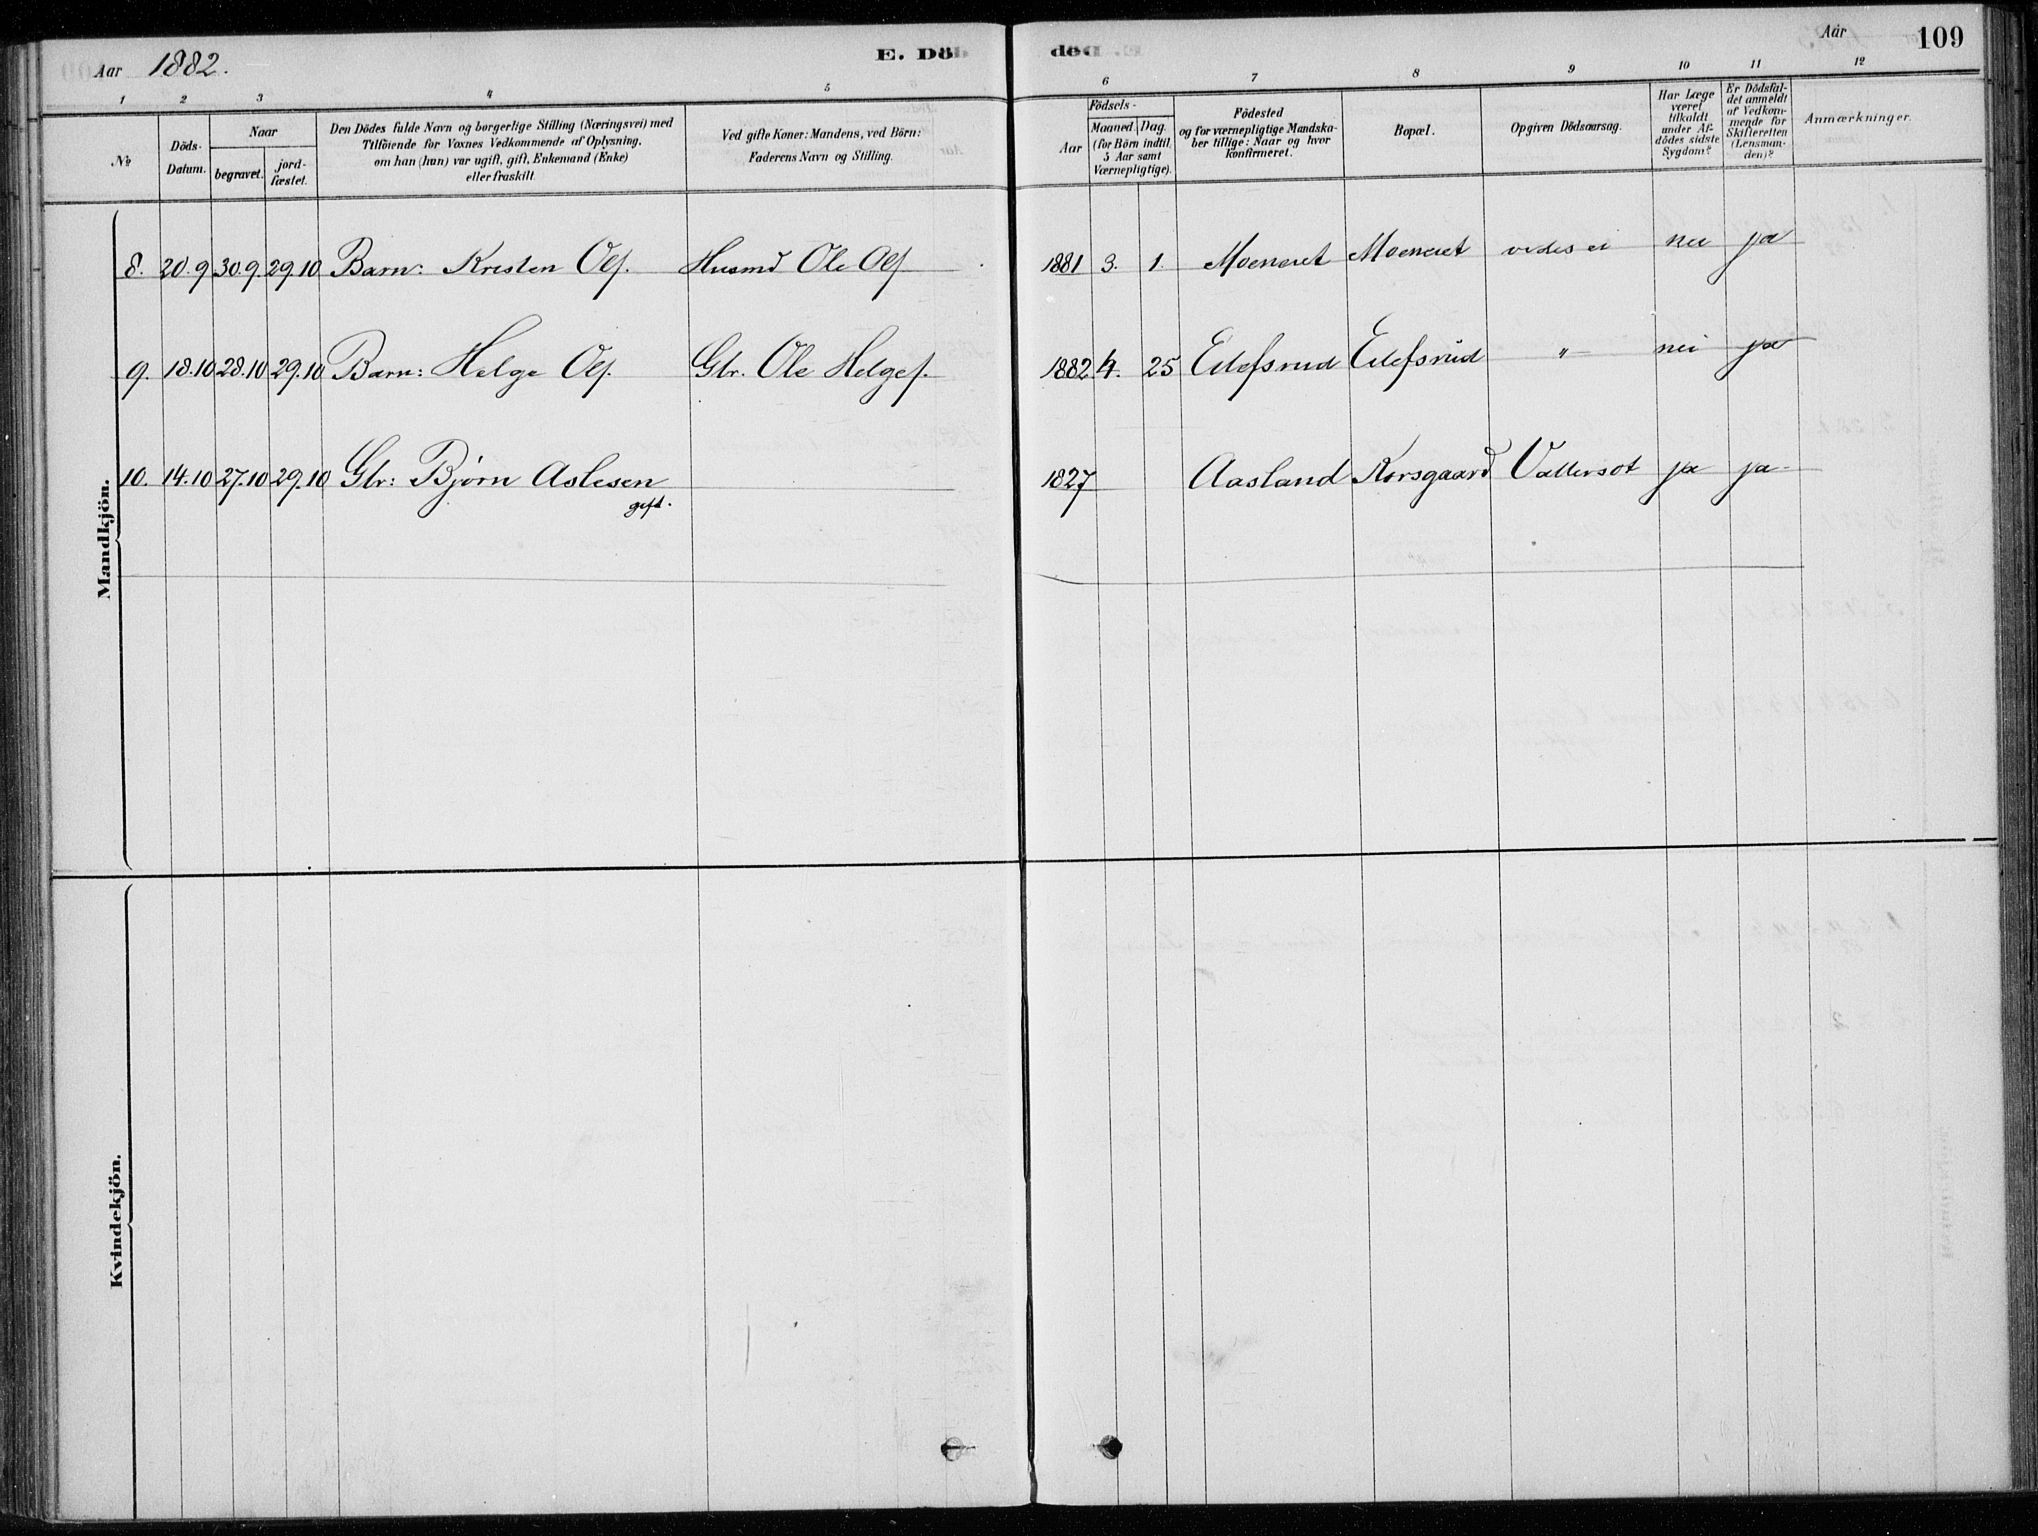 Aar 1882.
E. Dö
död
Aar
109
1 2 3 4 5 6 7 8 9 10 11 12
No
Döds-Datum.
Naar
begravet.
jord-fæstet.
Den Dödes fulde Navn og borgerlige Stilling (Næringsvei) med
Tilföiende for Voxnes Vedkommende af Oplysning,
om han (hun) var ugift, gift, Enkemand (Enke)
eller fraskilt.
Ved gifte Koner: Mandens, ved Börn:
Faderens Navn og Stilling.
Födsels-
Aar
Maaned. Dag.
(for Börn indtil
5 Aar samt
Værnepligtige).
Födested
og for værnepligtige Mandska-
ber tillige: Naar og hvor
konfirmeret.
Bopæl.
Opgiven Dödsaarsag.
Har Læge
været
tilkaldt
under Af-
dödes sidste
Sygdom?
Er Dödsfal-
det anmeldt
af Vedkom-
mende for
Skifteretten
(Lensman-
den)?
Anmærkninger.
Mandkjön.
8. 20.9 30.9 29.10 Barn: Kristen Ols. Husmd Ole Ols 1881 3. 1. Moeneret Moeneret vides ei nei ja
9. 18.10 28.10 29.10 Barn: Helge Ols. Gbr. Ole Helges. 1882 4. 25 Eilefsrud Eilefsrud " nei ja
10. 14.10 27.10 29.10 Gbr: Bjørn Aslesen 1827 Aasland Korsgaard Vattersot ja ja
gift.
Kvindekjön.